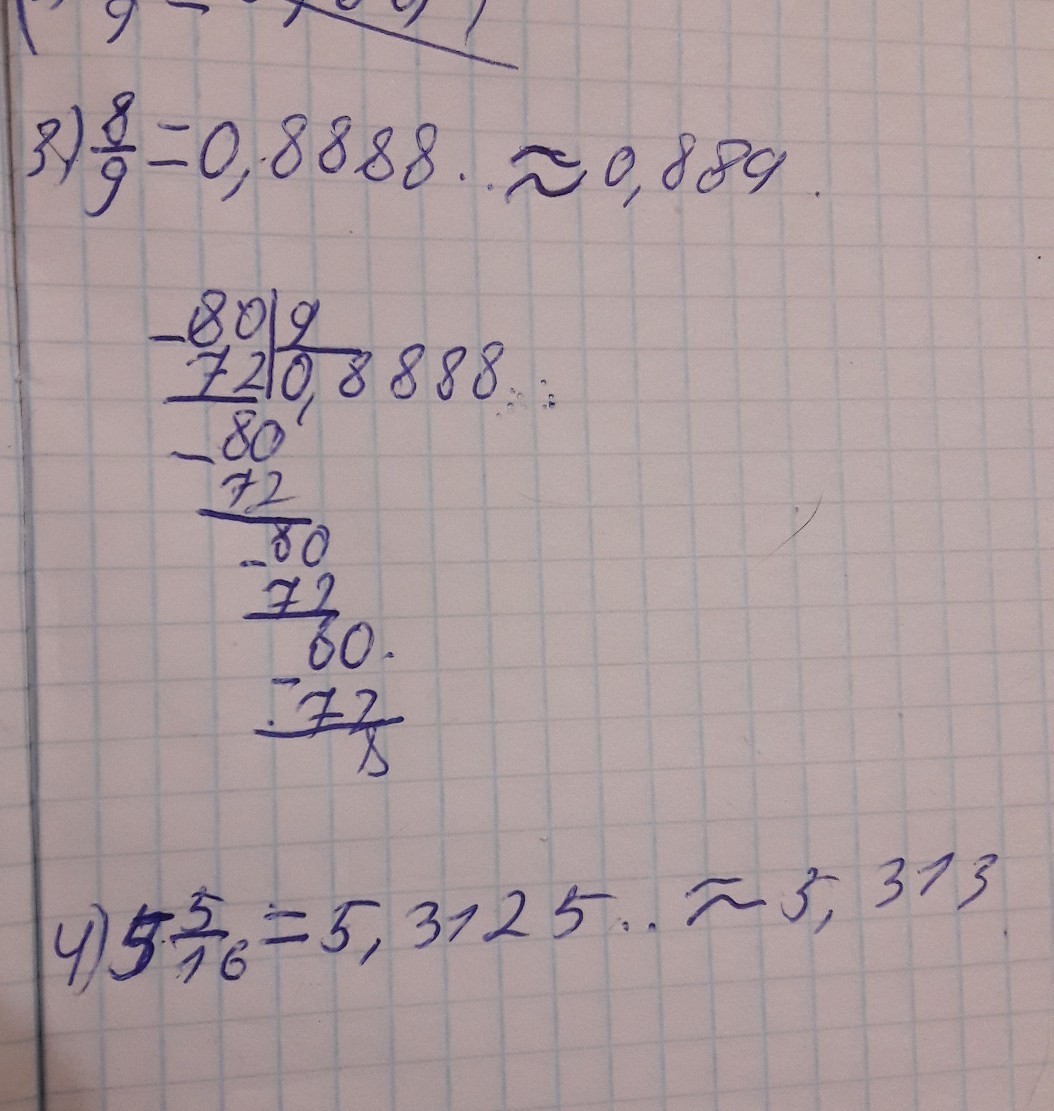 3) 8/9 = 0,8888... ≈ 0,889.
-80|9
72|0,8888...
-80
72
-80
72
80.
-72
8
4) 5 5/16 = 5,3125.. ≈ 5,313